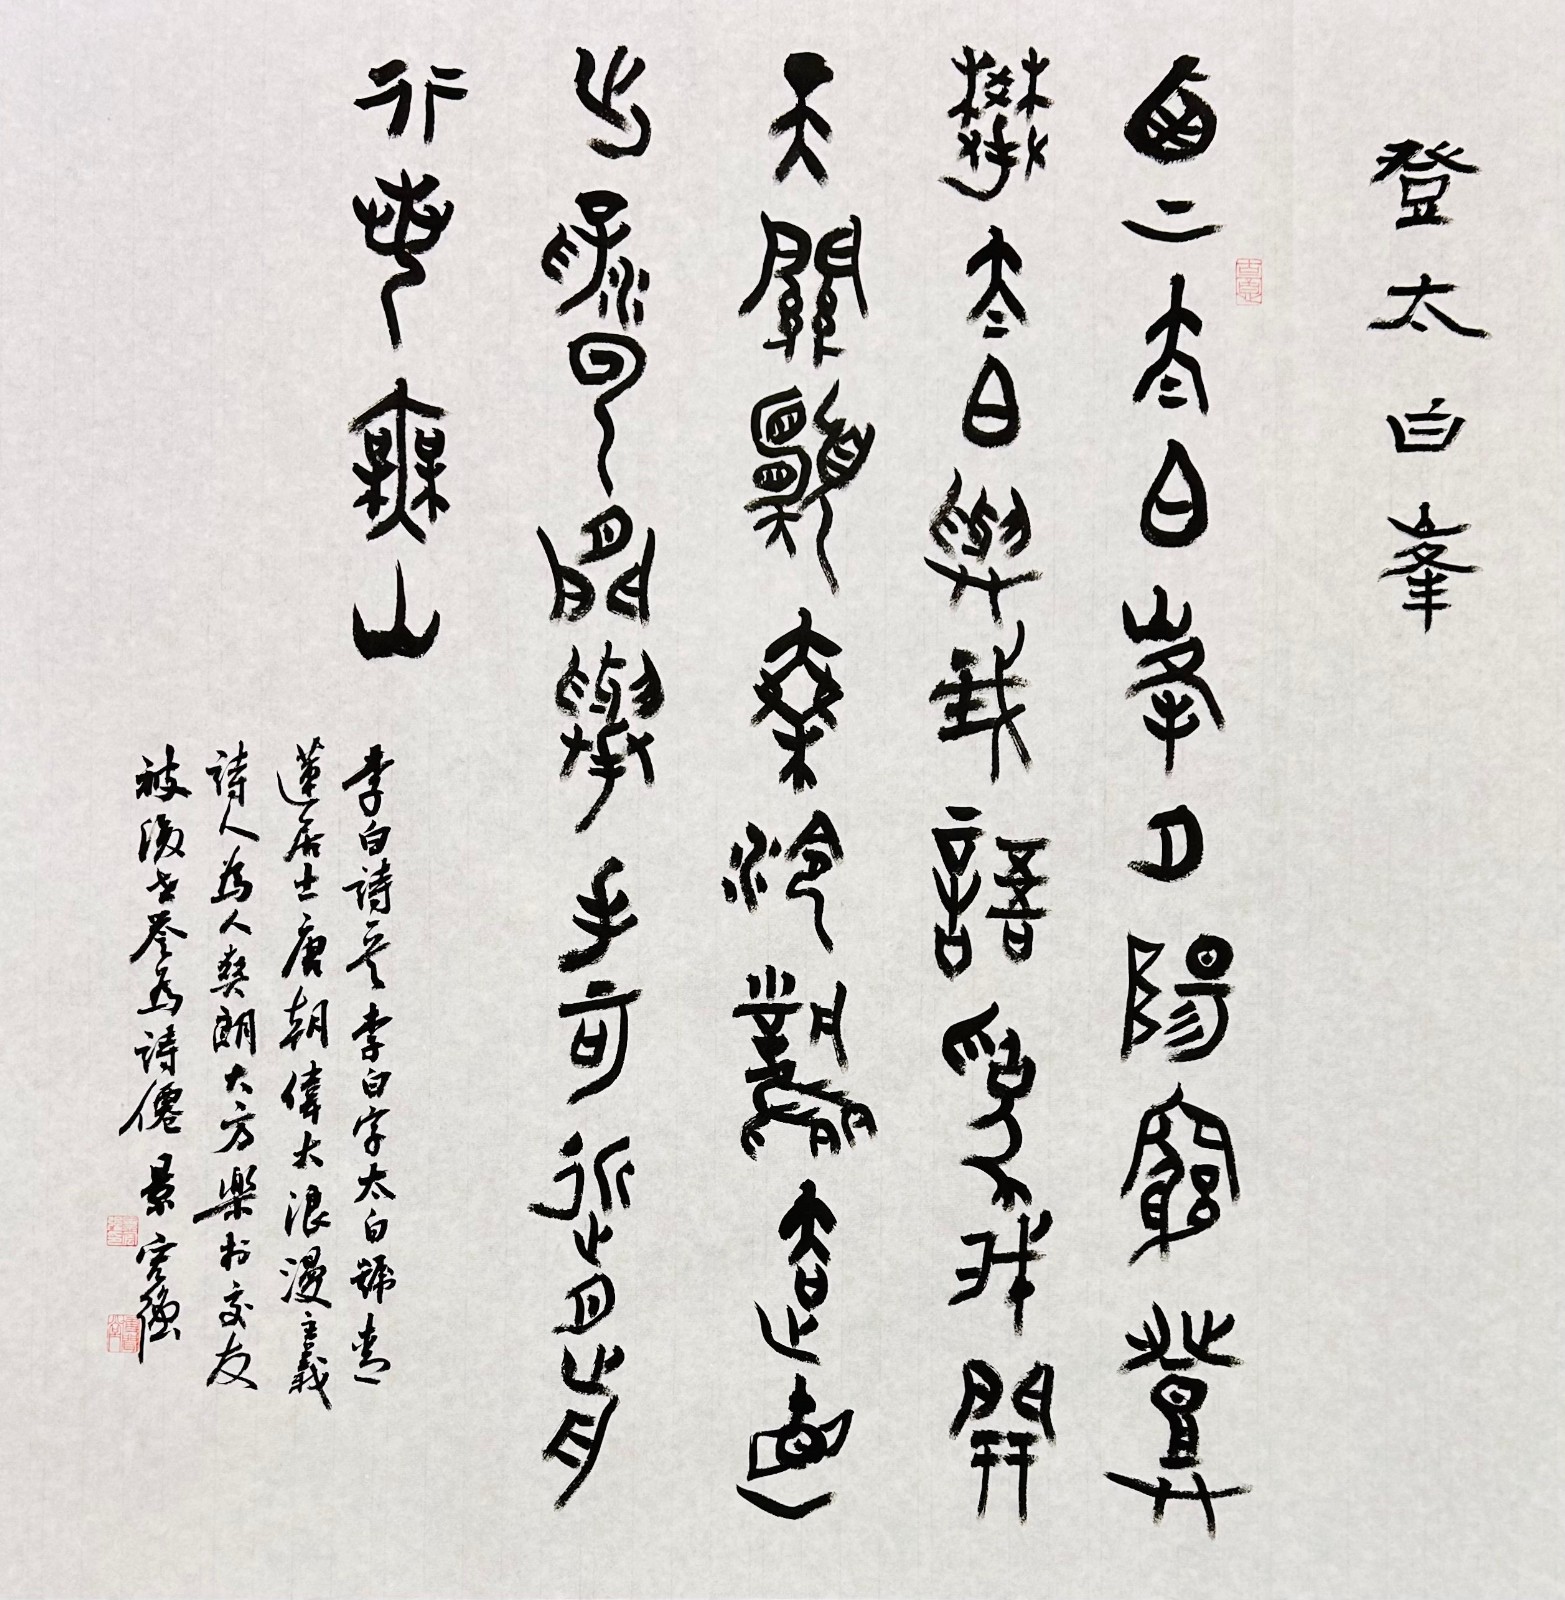 登太白峯
西上太白峯夕陽窮登
攀太白與我語爲我開
天關願乘泠風去直
出浮雲間舉手可近月前
行若無山
李白詩 李白字太白號青
蓮居士唐朝偉大浪漫主義
詩人為人爽朗大方樂於交友
被後世譽為詩僊 景宏強